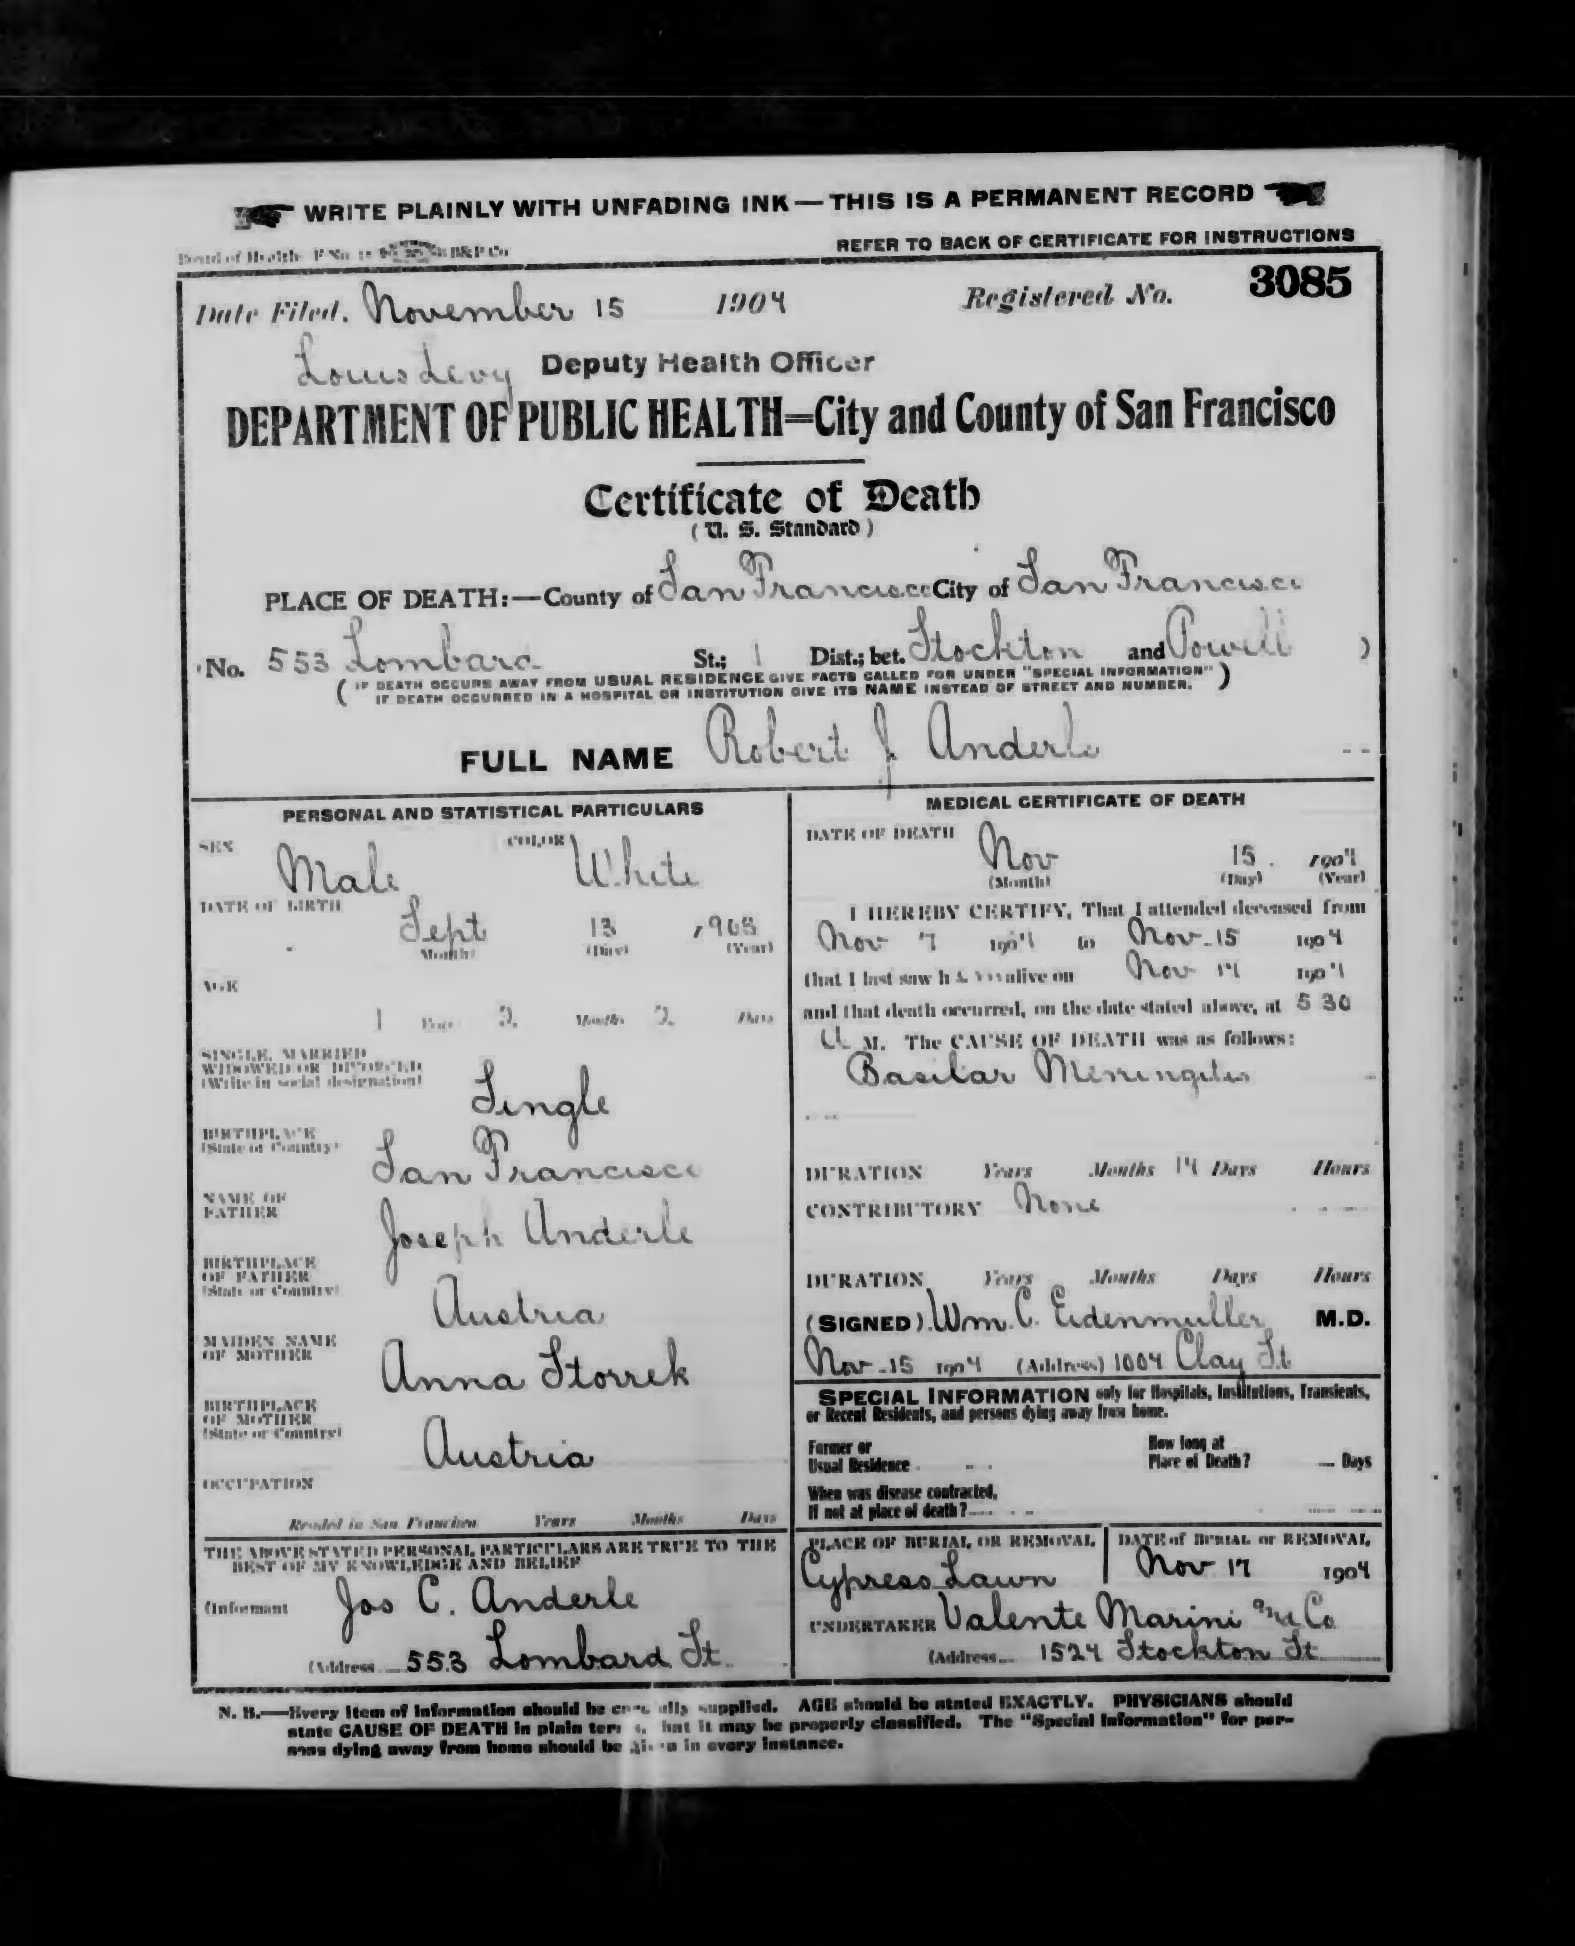 WRITE PLAINLY WITH UNFADING INK — THIS IS A PERMANENT RECORD
Board of Health B&P Co
REFER TO BACK OF CERTIFICATE FOR INSTRUCTIONS
Date Filed, November 15 1904 Registered No. 3085
Louis Levy Deputy Health Officer
DEPARTMENT OF PUBLIC HEALTH=City and County of San Francisco
Certificate of Death
(U. S. Standard)
PLACE OF DEATH:—County of San Francisco City of San Francisco
No. 553 Lombard St.; 1 Dist.; bet. Stockton and Powell )
( IF DEATH OCCURS AWAY FROM USUAL RESIDENCE GIVE FACTS CALLED FOR UNDER "SPECIAL INFORMATION" )
IF DEATH OCCURRED IN A HOSPITAL OR INSTITUTION GIVE ITS NAME INSTEAD OF STREET AND NUMBER.
FULL NAME Robert J Anderle
PERSONAL AND STATISTICAL PARTICULARS
SEX Male COLOR White
DATE OF BIRTH
Sept 13 1903
(Month) (Day) (Year)
AGE
1 Years 2 Months 2 Days
SINGLE, MARRIED
WIDOWED OR DIVORCED
(Write in social designation)
Single
BIRTHPLACE
(State or Country)
San Francisco
NAME OF
FATHER
Joseph Anderle
BIRTHPLACE
OF FATHER
(State or Country)
Austria
MAIDEN NAME
OF MOTHER
Anna Storrek
BIRTHPLACE
OF MOTHER
(State or Country)
Austria
OCCUPATION
Resided in San Francisco Years Months Days
THE ABOVE STATED PERSONAL PARTICULARS ARE TRUE TO THE
BEST OF MY KNOWLEDGE AND BELIEF
(Informant Jos C. Anderle
(Address 553 Lombard St.
MEDICAL CERTIFICATE OF DEATH
DATE OF DEATH
Nov 15 . 1904
(Month) (Day) (Year)
I HEREBY CERTIFY, That I attended deceased from
Nov 7 1904 to Nov-15 1904
that I last saw h alive on Nov 14 1904
and that death occurred, on the date stated above, at 5 30
a M. The CAUSE OF DEATH was as follows:
Basilar Meningitis
DURATION Years Months 14 Days Hours
CONTRIBUTORY None
DURATION Years Months Days Hours
(SIGNED) Wm. C. Eidenmuller M.D.
Nov-15 1904 (Address) 1004 Clay St
SPECIAL INFORMATION only for Hospitals, Institutions, Transients,
or Recent Residents, and persons dying away from home.
Former or
Usual Residence
How long at
Place of Death? Days
When was disease contracted,
If not at place of death?
PLACE OF BURIAL OR REMOVAL
Cypress Lawn
DATE of BURIAL or REMOVAL
Nov 17 1904
UNDERTAKER Valente Marini and Co
(Address 1524 Stockton St
N. B.—Every item of information should be supplied. AGE should be stated EXACTLY. PHYSICIANS should
state CAUSE OF DEATH in plain that it may be properly classified. The "Special Information" for per-
sons dying away from home should be given in every instance.